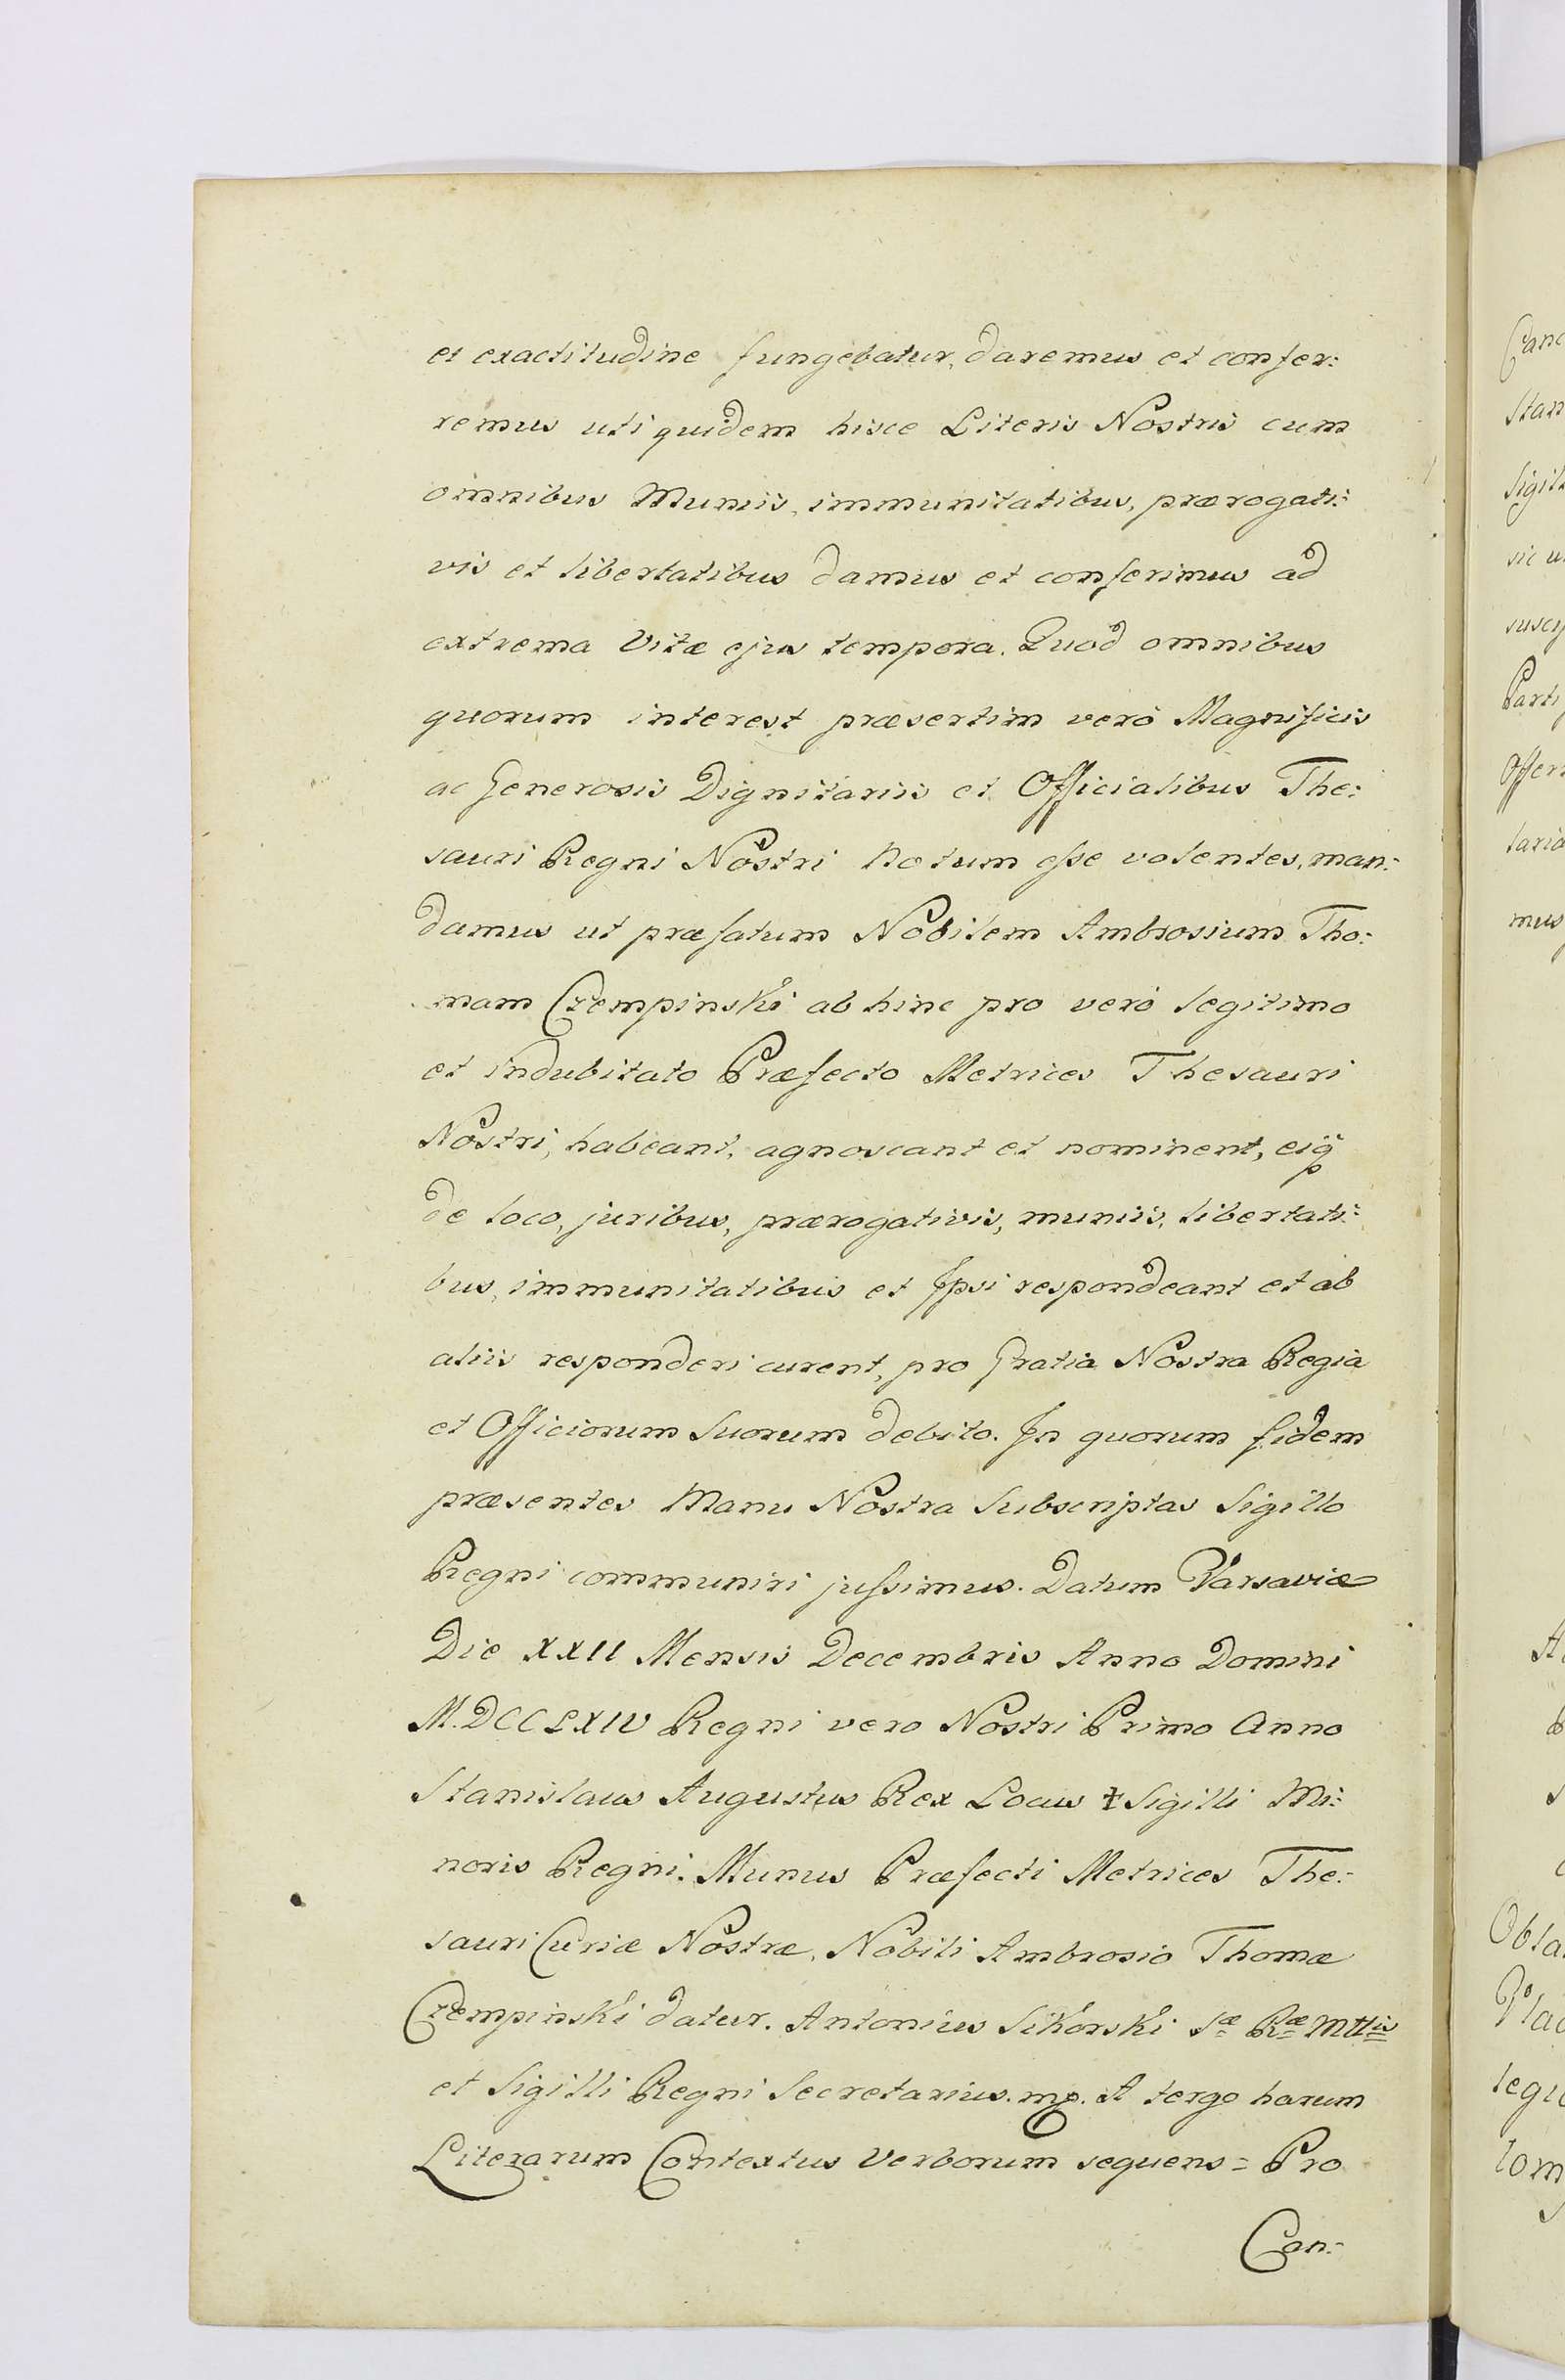 et exactitudine fungebatur, daremus et confer:
remus uti quidem hisce Literis Nostris cum
omnibus Muniis, immunitatibus, prærogati:
vis et libertatibus damus et conferimus ad
extrema Vitæ ejus tempora. Quod omnibus
quorum interest præsertim verò Magnificis
ac Generosis Dignitariis et Officialibus The:
sauri Regni Nostri Notum esse volentes, man:
damus ut præfatum Nobilem Ambrosium Tho:
mam Czempinski ab hinc pro verò legitimo
et indubitato Præfecto Metrices Thesauri
Nostri, habeant, agnoscant et nominent, eiq̃
de loco, juribus, prærogativis, muniis, libertati:
bus, immunitatibus et Ipsi respondeant et ab
aliis responderi curent, pro Gratia Nostra Regià
et Officiorum Suorum debito. In quorum fidem
præsentes Manu Nostra Subscriptas Sigillo
Regni communiri jussimus. Datum Varsaviæ
Die XXII Mensis Decembris Anno Domini
M.DCCLXIV Regni vero Nostri Primo Anno
Stanislaus Augustus Rex Locus ‡ Sigilli Mi:
noris Regni. Munus Præfecti Metrices The:
sauri Curiæ Nostræ, Nobili Ambrosio Thomæ
Czempinski datur. Antonius Sikorski Sæ Ræ Mttis
et Sigilli Regni Secretarius. mp. A tergo harum
Literarum Contextus Verborum sequens = Pro
Can:
Stan
sic
Parti
mus